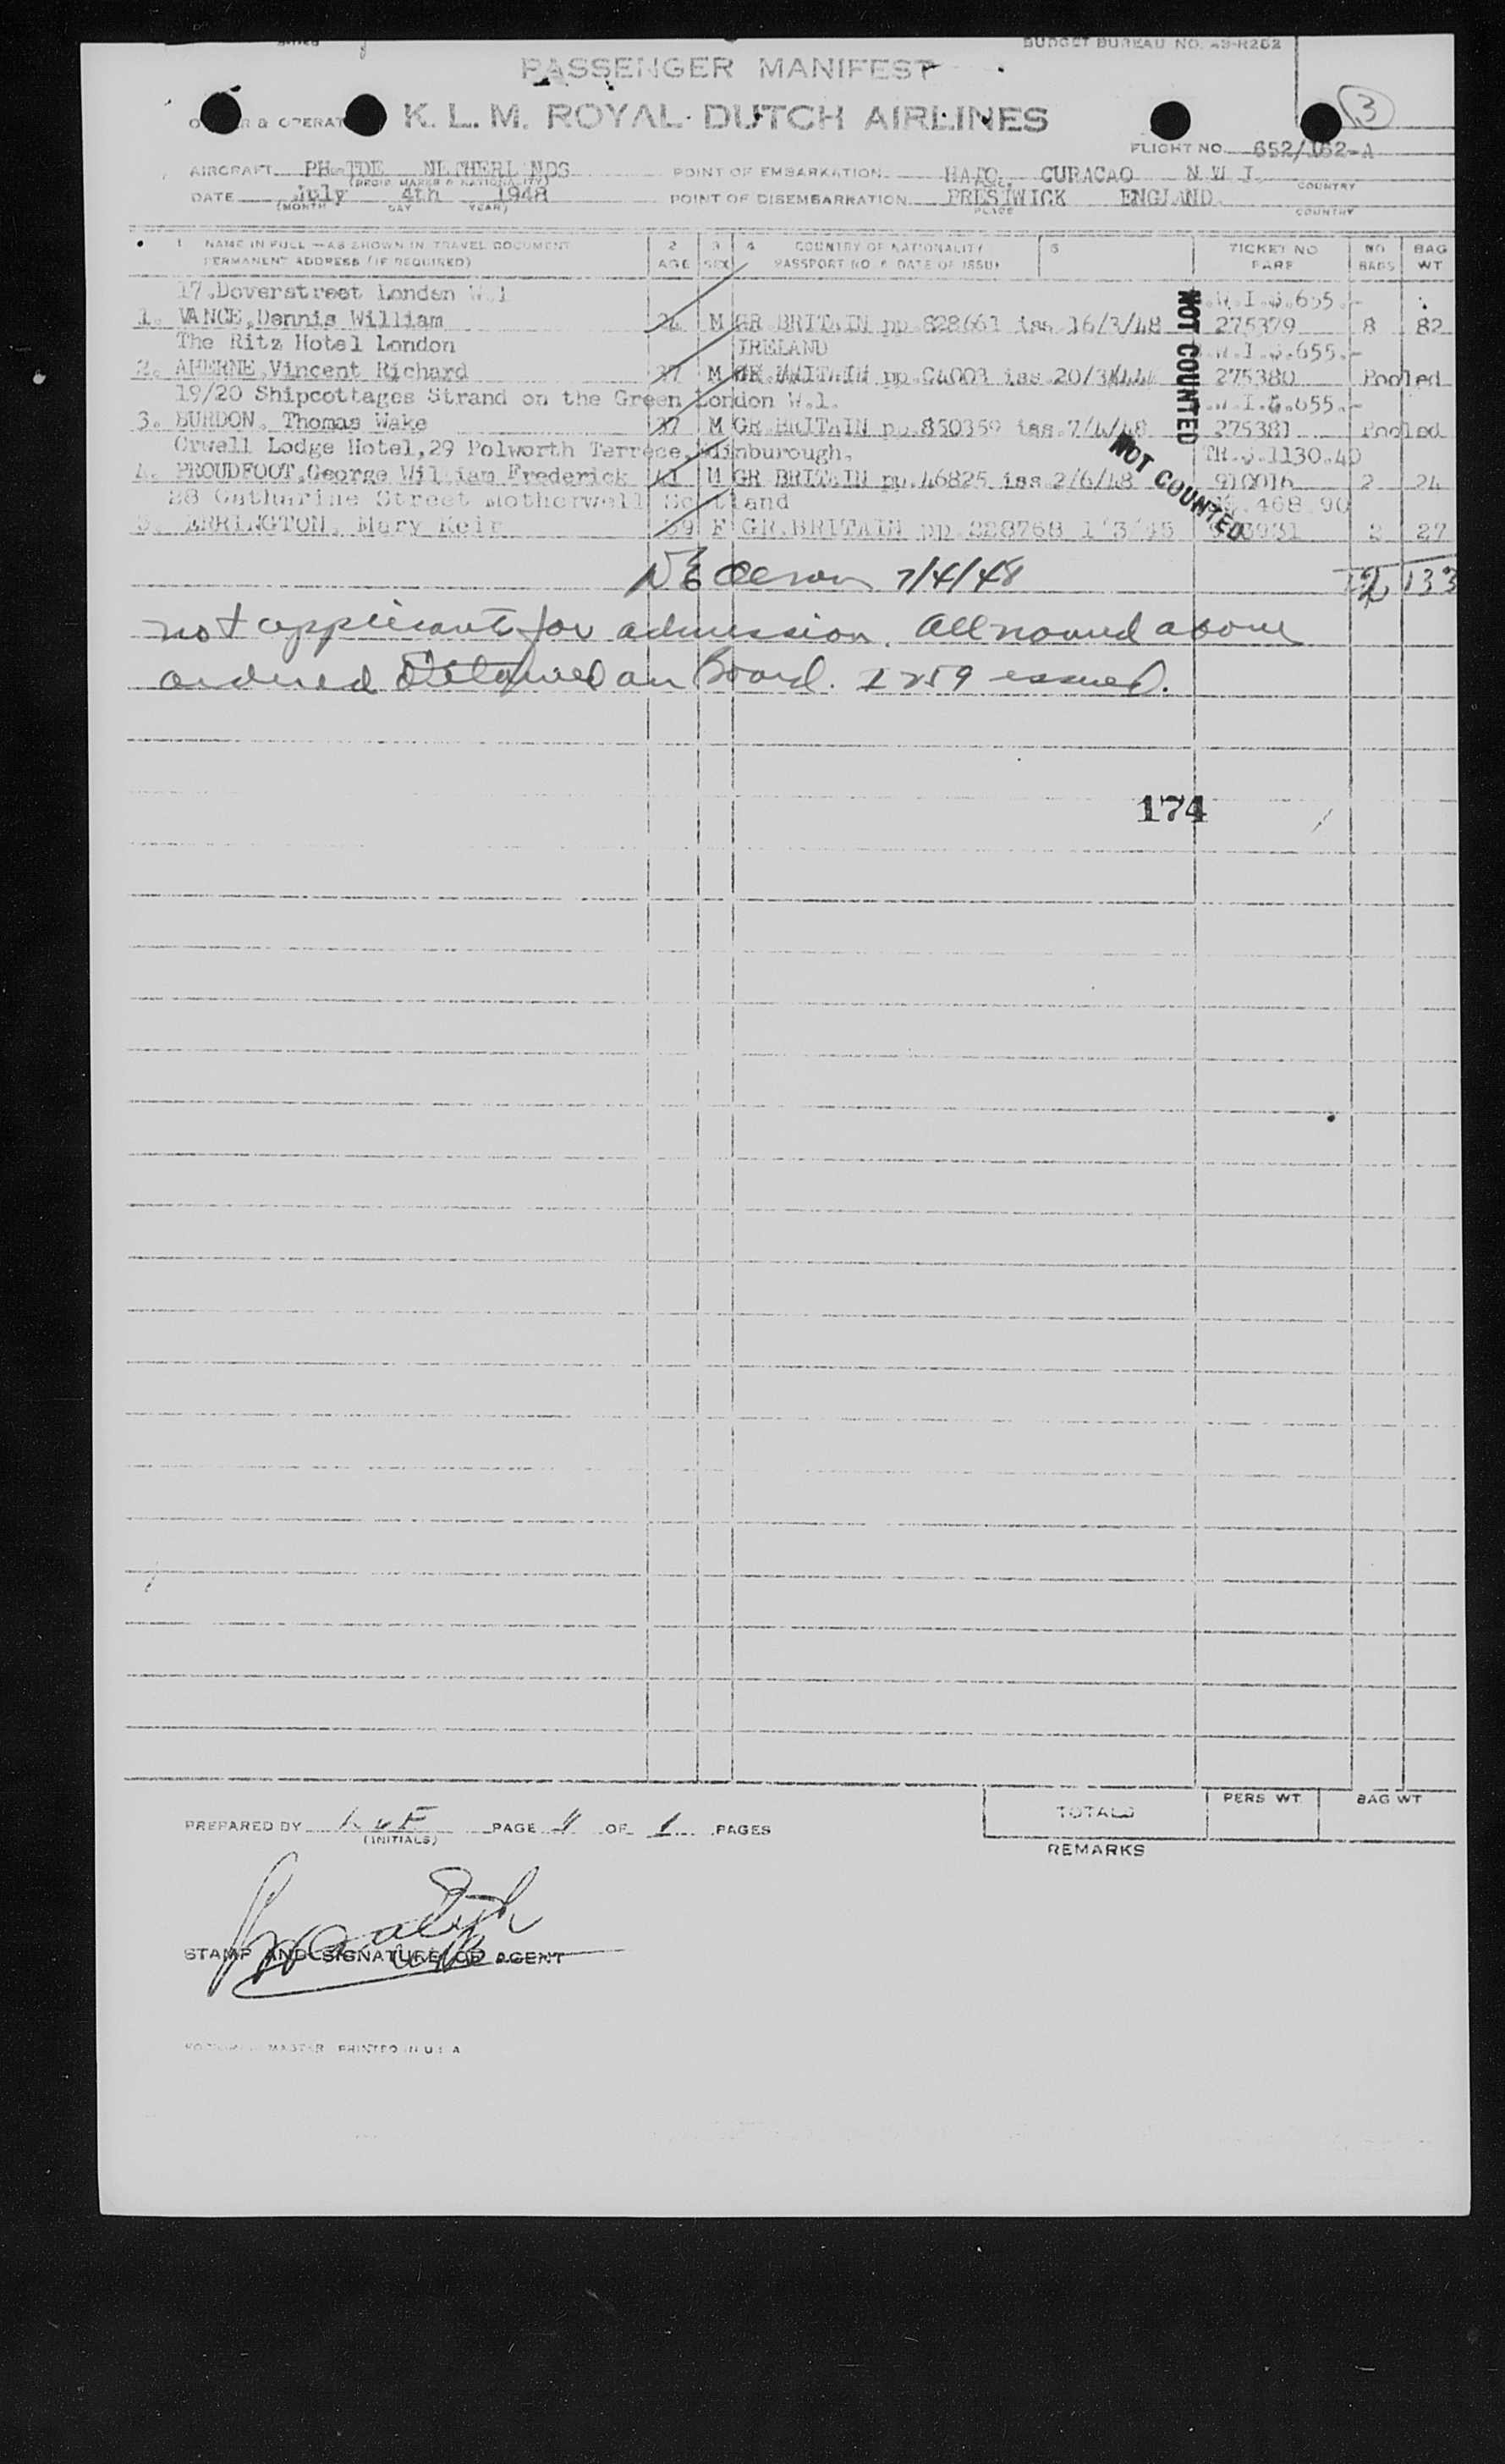 BUDGET BUREAU NO. 49-R262
PASSENGER MANIFEST
3
K. L. M. ROYAL DUTCH AIRLINES
FLIGHT NO. 652/162-A
AIRCRAFT PH-TDE NETHERL NDS POINT OF EMBARKATION HATO, CURACAO N.W.I.
(REGIS. MARKS & NATIONALITY) COUNTRY
DATE July 4th 1948 POINT OF DISEMBARKATION PRESTWICK ENGLAND.
(MONTH DAY YEAR) PLACE COUNTRY
1 NAME IN FULL — AS SHOWN IN TRAVEL DOCUMENT 2 3 4 COUNTRY OF NATIONALITY 5 TICKET NO NO BAG
PERMANENT ADDRESS (IF REQUIRED) AGE SEX PASSPORT NO & DATE OF ISSUE FARE BAGS WT
17.Doverstreet London W.1 .W.I.$.655.-
1. VANCE,Dennis William M GR BRITAIN pp.828661 iss 16/3/48 275379 8 82
The Ritz Hotel London IRELAND .W.I.$.655.-
2. AHERNE,Vincent Richard 37 M GR.BRITAIN pp.C4003 iss 20/3/ 275380 Pooled
19/20 Shipcottages Strand on the Green London W.1. .W.I.$.655.-
3. BURDON, Thomas Wake 37 M GR.BRITAIN pp.850359 iss 7/4/48 275381 Pooled
Orwell Lodge Hotel,29 Polworth Terrece,Edinburough. TR.$.1130.40
4. PROUDFOOT,George William Frederick 41 M GR BRITAIN pp.46825 iss 2/6/48 910016 2 24
28 Catharine Street Motherwell Scotland 468.90
5. ERRINGTON, Mary Keir 39 F GR.BRITAIN pp 228768 1/3/45 2 27
NOT COUNTED
NOT COUNTED
7/4/48 12 133
not applicant for admission. All named above
ordered detained on Board. I 259 issued.
174
TOTALS PERS WT. BAG WT
PREPARED BY (INITIALS) PAGE 1 OF 1 PAGES
REMARKS
STAMP AND SIGNATURE OF AGENT
MASTER PRINTED IN U S A